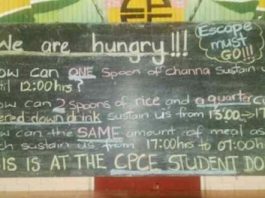 We are hungry!!!
Escape
must
GO!!!
ow can ONE Spoon of Channa sustain u
til 12:00hrs?
ow can 2 spoons of rice and a quarter c
ered down drink sustain us from 15:00→17
ow can the SAME amount of meal as
ch sustain us from 17:00hrs to 07:00h
IS IS AT THE CPCE STUDENT DO